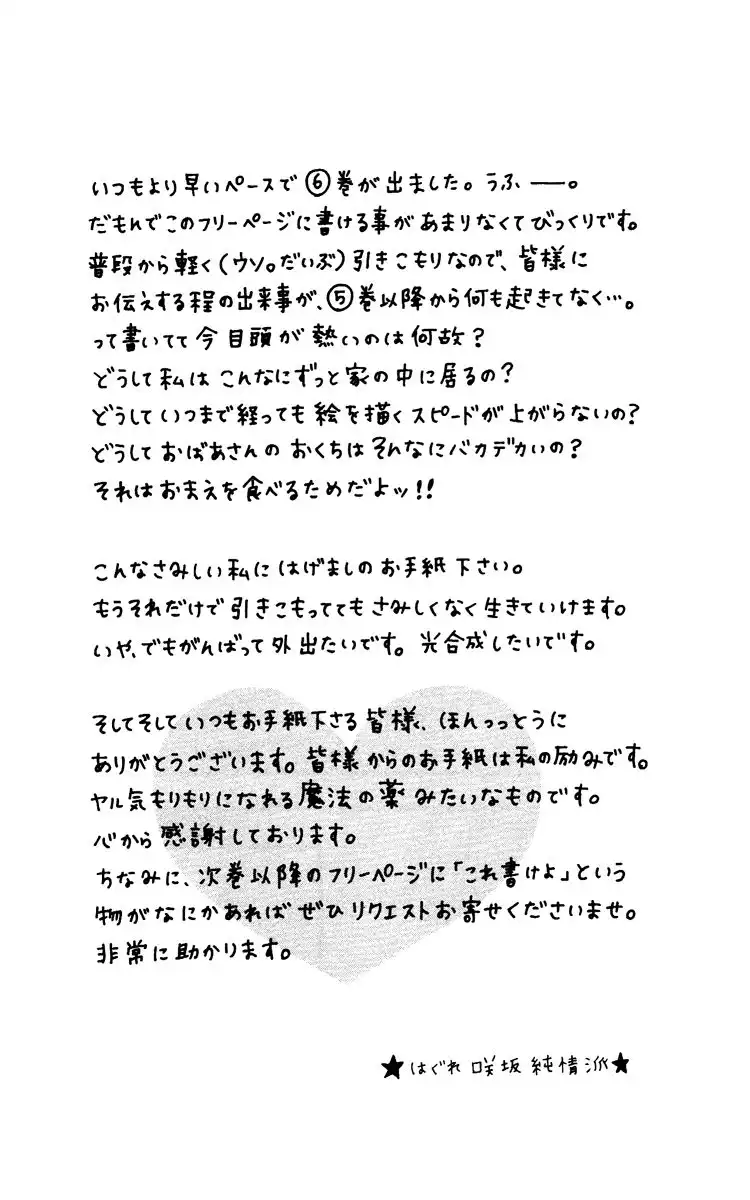 いつもより早いペースで⑥巻が出ました。うふ――。
だもんでこのフリーページに書ける事があまりなくてびっくりです。
普段から軽く(ウソ。だいぶ)引きこもりなので、皆様に
お伝えする程の出来事が、⑤巻以降から何も起きてなく…。
って書いてて今目頭が熱いのは何故?
どうして私はこんなにずっと家の中に居るの?
どうしていつまで経っても絵を描くスピードが上がらないの?
どうしておばあさんのおくちはそんなにバカデカいの?
それはおまえを食べるためだよッ!!
こんなさみしい私にはげましのお手紙下さい。
もうそれだけで引きこもっててもさみしくなく生きていけます。
いや、でもがんばって外出たいです。光合成したいです。
そしてそしていつもお手紙下さる皆様、ほんっっとうに
ありがとうございます。皆様からのお手紙は私の励みです。
ヤル気もりもりになれる魔法の薬みたいなものです。
心から感謝しております。
ちなみに、次巻以降のフリーページに「これ書けよ」という
物がなにかあればぜひリクエストお寄せくださいませ。
非常に助かります。
★はぐれ咲坂純情派★